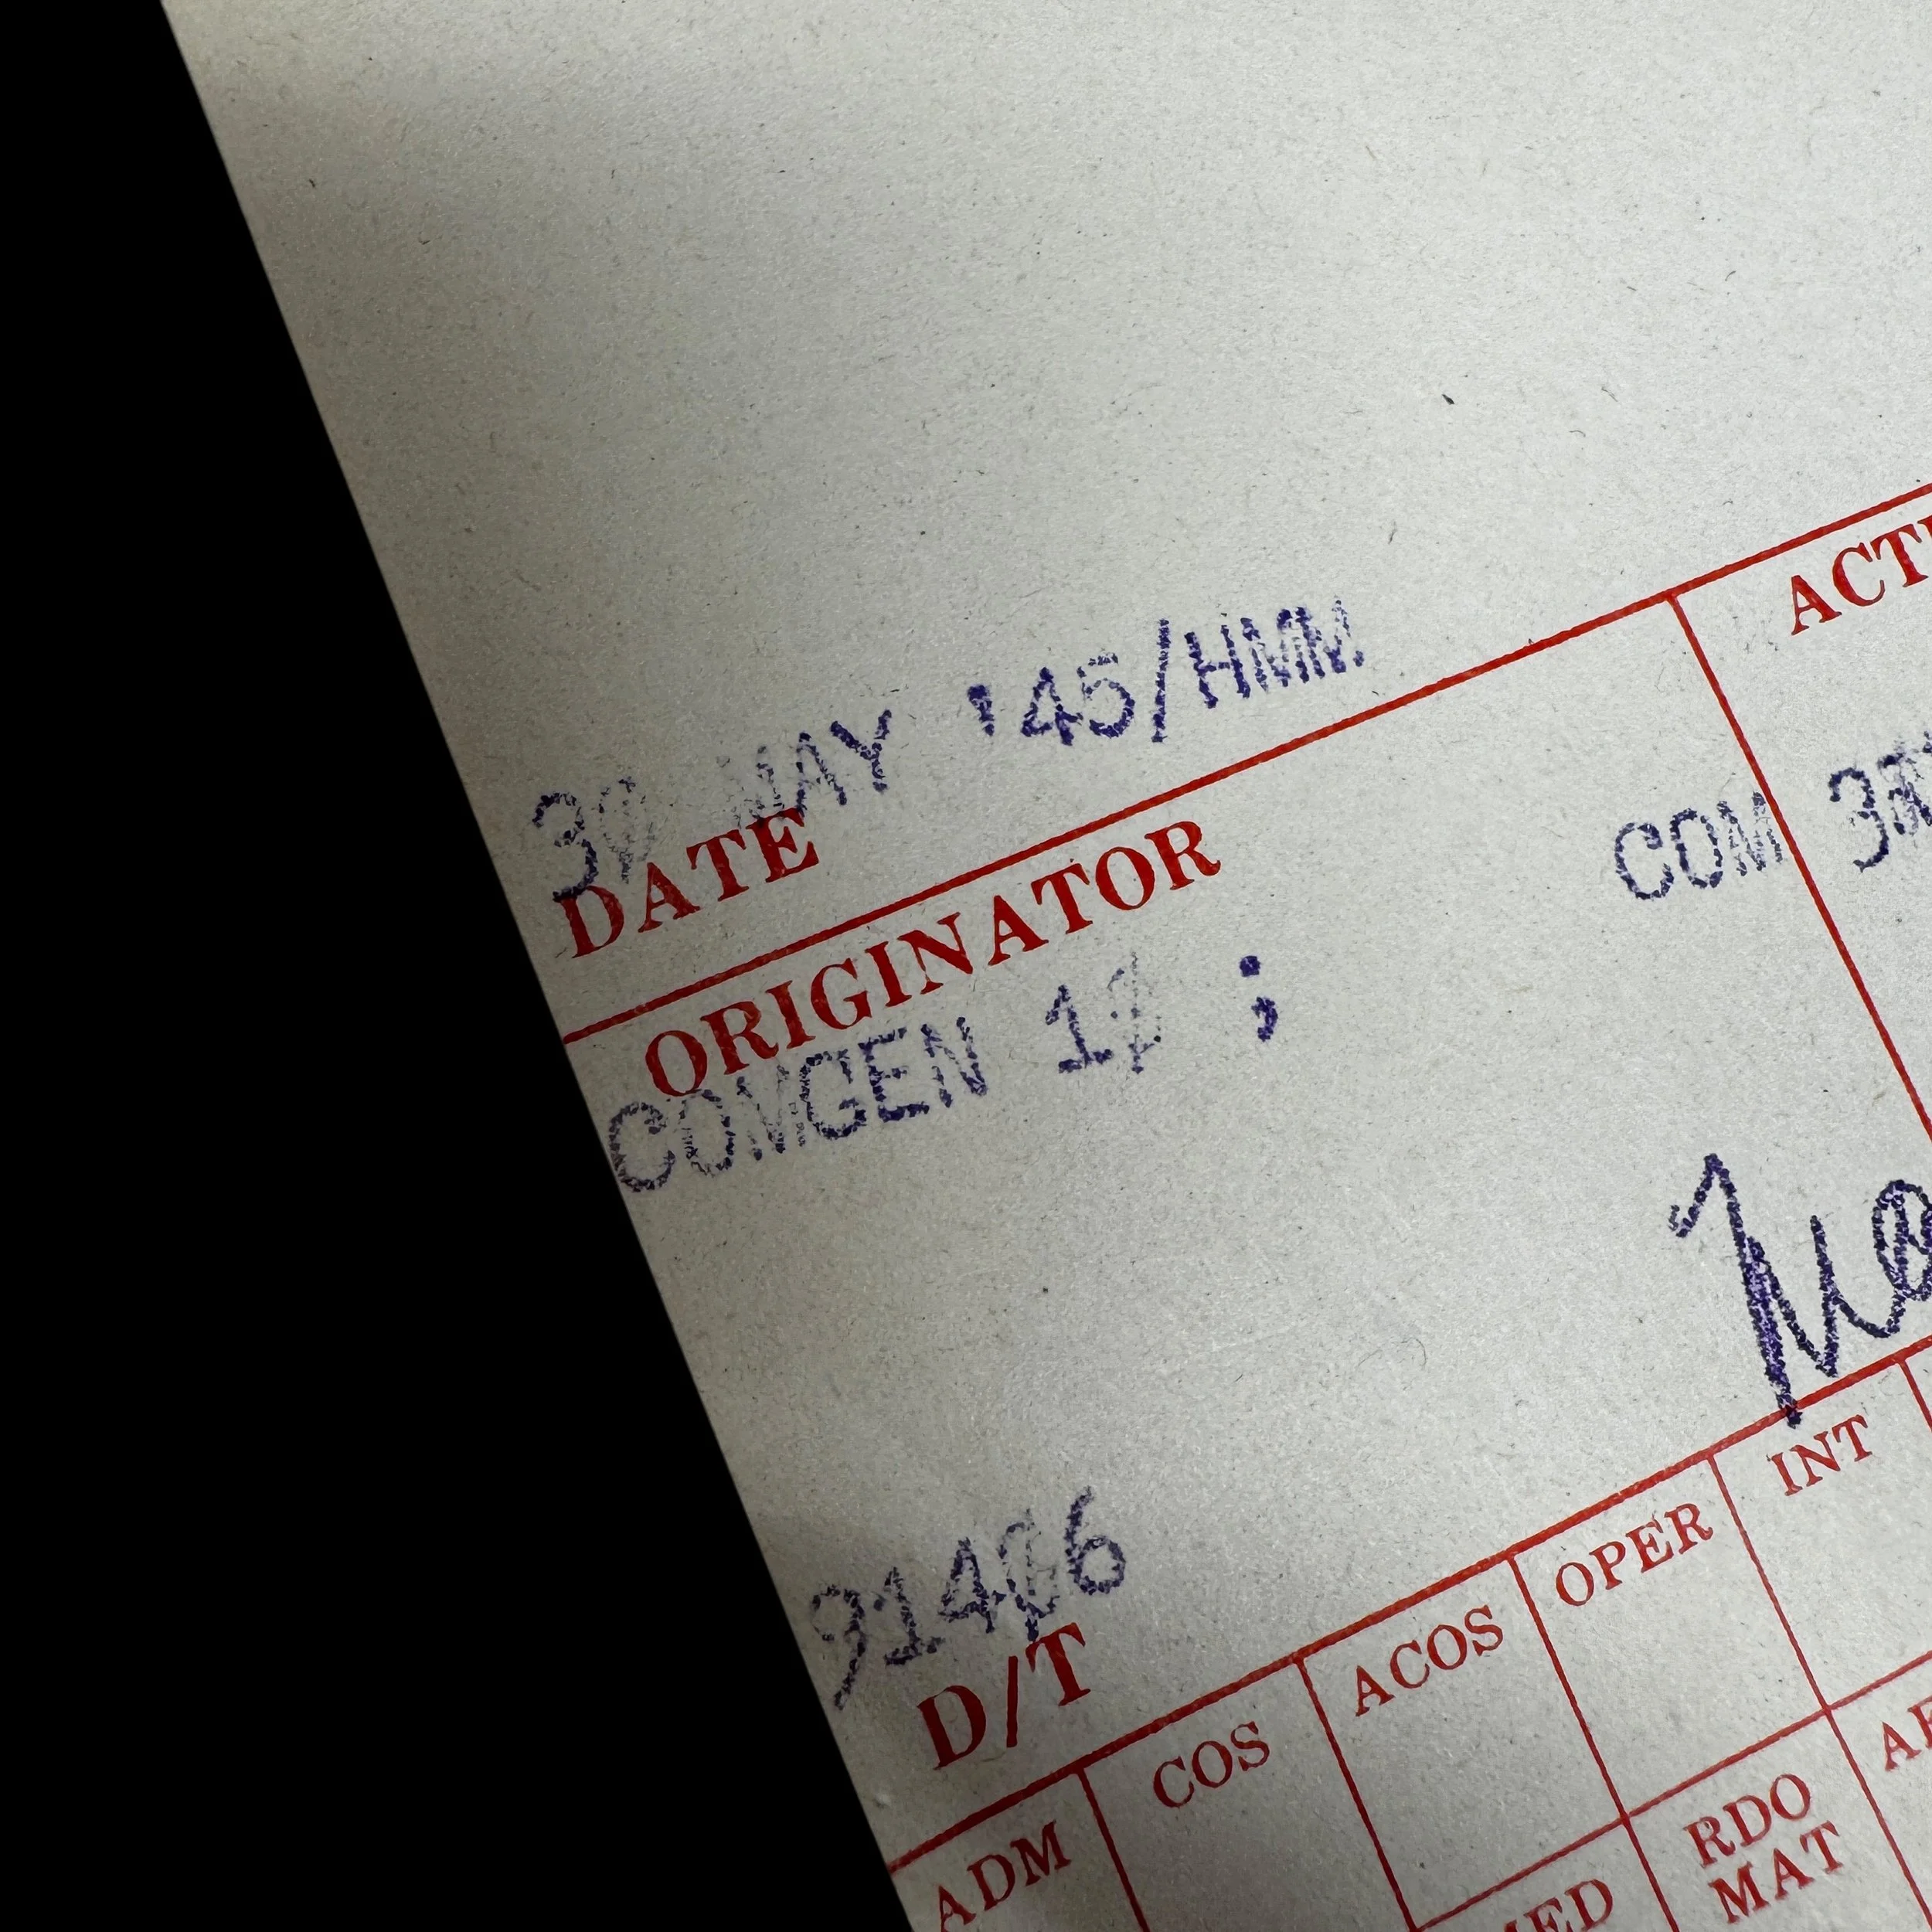 30 MAY '45/HMM
DATE
ORIGINATOR
COMGEN 10 ;
COM 3
D/T
ADM COS ACOS OPER INT
MED RDO MAT